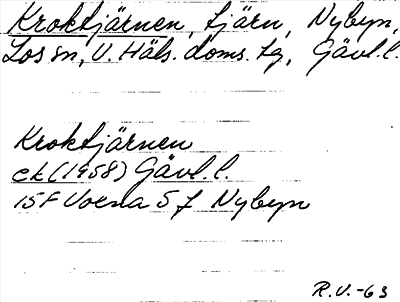 Kroktjärnen, tjärn, Nybyn,
Los sn, V. Häls. doms. tg, Gävl. l.
Kroktjärnen
ek (1958) Gävl. l.
15F Voxna 5 f Nybyn
R.V. -63